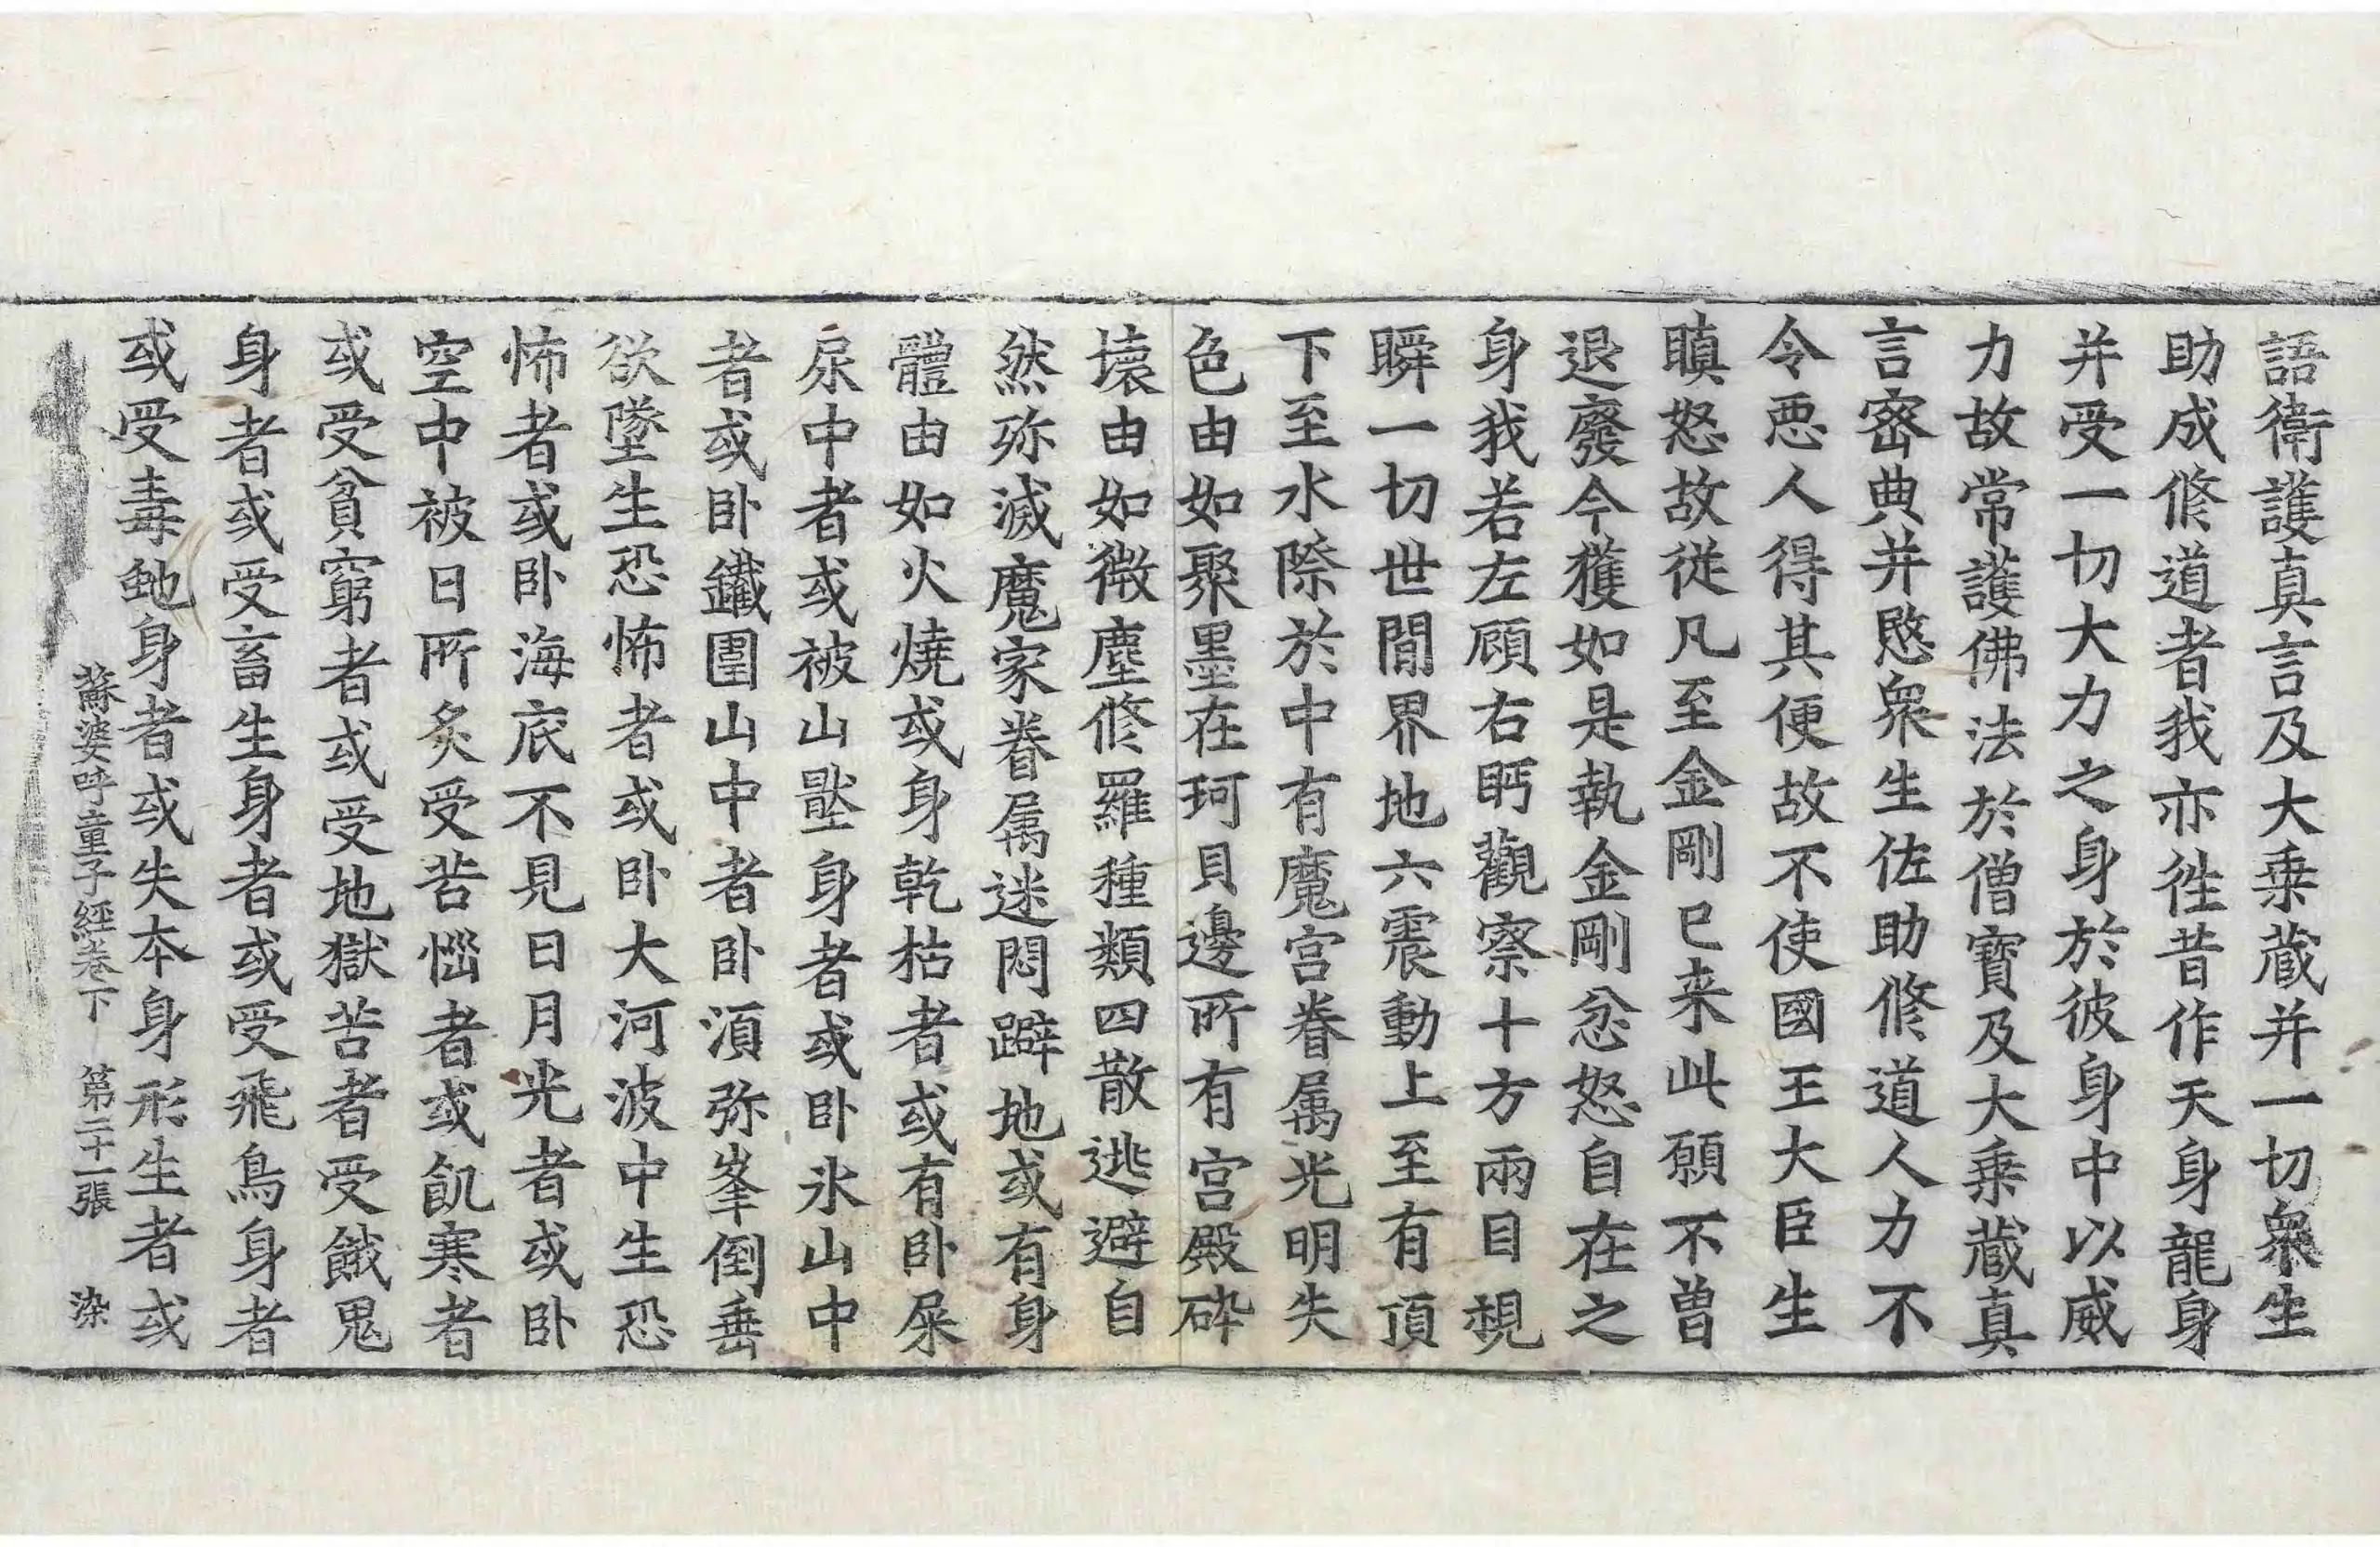 語衛護真言及大乗蔵并一切衆生
助成修道者我亦徃昔作天身龍身
并受一切大力之身於彼身中以威
力故常護佛法於僧寶及大乗蔵真
言密典并愍衆生佐助修道人力不
令恶人得其便故不使國王大臣生
瞋怒故従凡至金剛已来此願不曽
退廢今獲如是執金剛忿怒自在之
身我若左顧右眄觀察十方兩目視
瞬一切世閒界地六震動上至有頂
下至水際於中有魔宫眷属光明失
色由如聚墨在珂貝邊所有宫殿碎
壊由如微塵修羅種類四散逃避自
然弥滅魔家眷属迷悶躃地或有身
體由如火燒或身乾枯者或有卧屎
尿中者或被山壓身者或卧氷山中
者或卧鐵圍山中者卧湏弥峯倒垂
欲墜生恐怖者或卧大河波中生恐
怖者或卧海底不見日月光者或卧
空中被日所炙受苦惱者或飢寒者
或受貧窮者或受地獄苦者受餓鬼
身者或受畜生身者或受飛鳥身者
或受毒虵身者或失本身形生者或
蘇婆呼童子經卷下　第二十一張　染